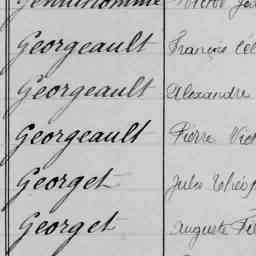 Georgeault François
Georgeault Alexandre
Georgeault Pierre
Georget Jules
Georget Auguste